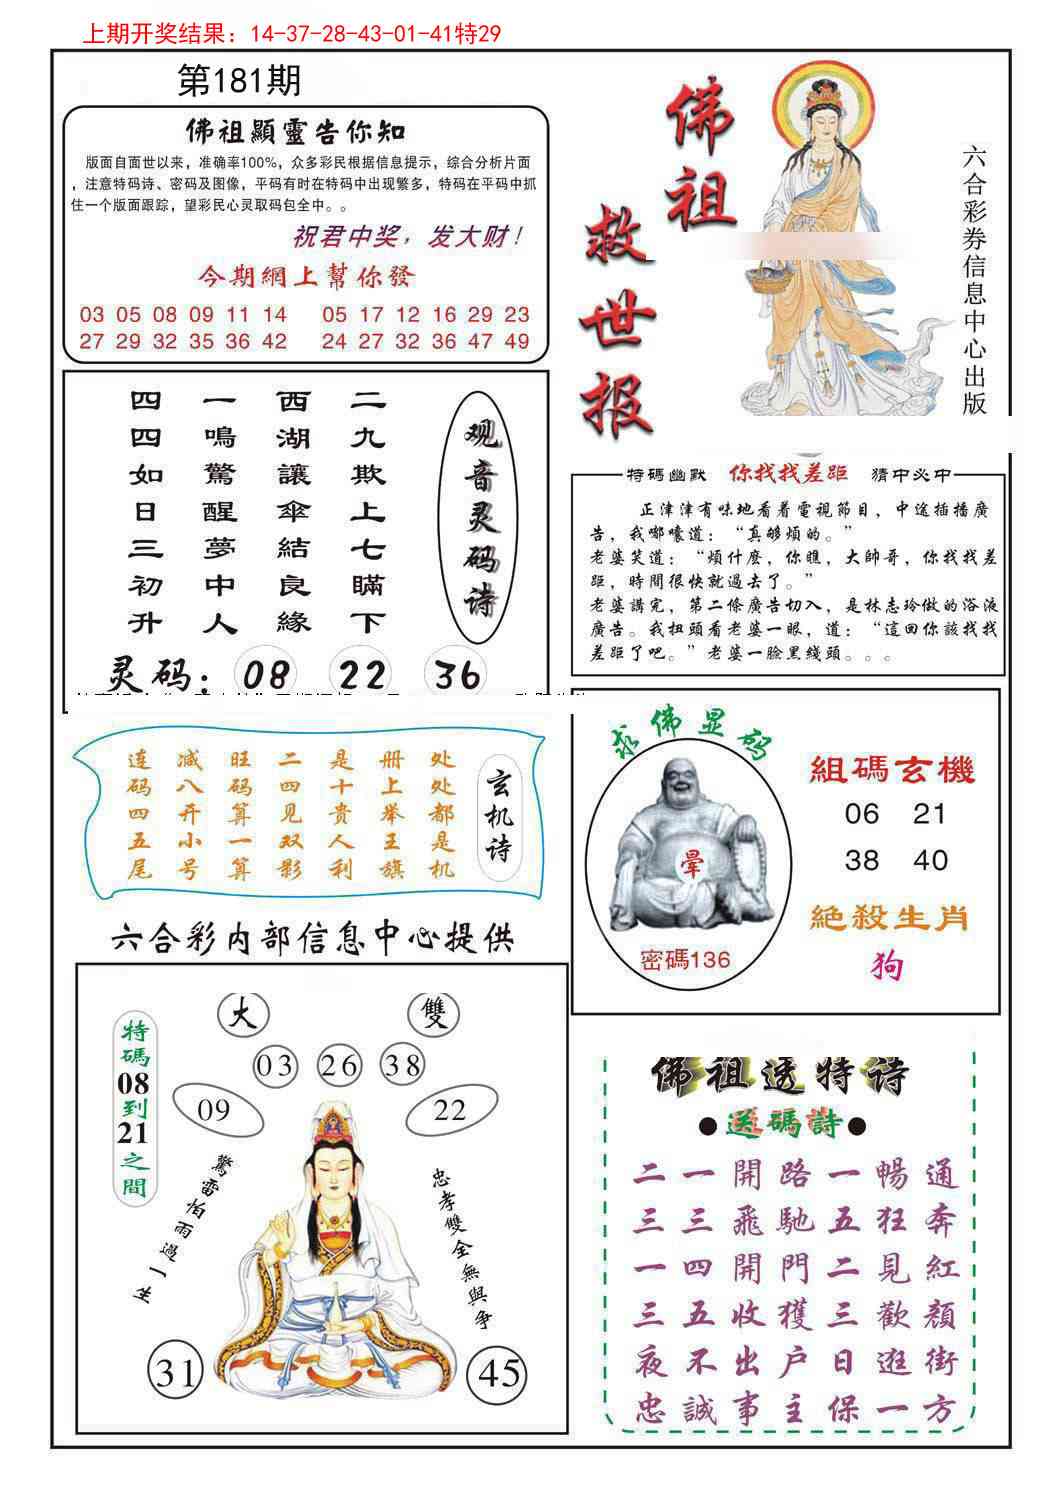 上期开奖结果：14-37-28-43-01-41特29
第181期
佛祖顯靈告你知
版面自面世以来，准确率100%，众多彩民根据信息提示，综合分析片面
，注意特码诗、密码及图像，平码有时在特码中出现繁多，特码在平码中抓
住一个版面跟踪，望彩民心灵取码包全中。。
祝君中奖，发大财！
今期網上幫你發
03 05 08 09 11 14 05 17 12 16 29 23
27 29 32 35 36 42 24 27 32 36 47 49
佛祖
救世报
六合彩券信息中心出版
观音灵码诗
二九欺上七瞞下
西湖讓傘結良緣
一鳴驚醒夢中人
四四如日三初升
灵码：08 22 36
特碼幽默 你找找差距 猜中必中
正津津有味地看着電視節目，中途插播廣
告，我嘟囔道：“真够煩的。”
老婆笑道：“煩什麽，你瞧，大帥哥，你找找差
距，時間很快就過去了。”
老婆講完，第二條廣告切入，是林志玲做的浴液
廣告。我扭頭看老婆一眼，道：“這回你該找找
差距了吧。”老婆一臉黑綫頭。。。
玄机诗
处处都是机
册上举王旗
是十贵人利
二四见双影
旺码算一算
减八开小号
连码四五尾
求佛显码
暈
密碼136
組碼玄機
06 21
38 40
絶殺生肖
狗
六合彩内部信息中心提供
特碼08到21之間
大 雙
03 26 38
09 22
驚雷怕雨過一生
忠孝雙全無與争
31 45
佛祖透特诗
●送碼詩●
二一開路一暢通
三三飛馳五狂奔
一四開門二見紅
三五收獲三歡顔
夜不出户日逛街
忠誠事主保一方